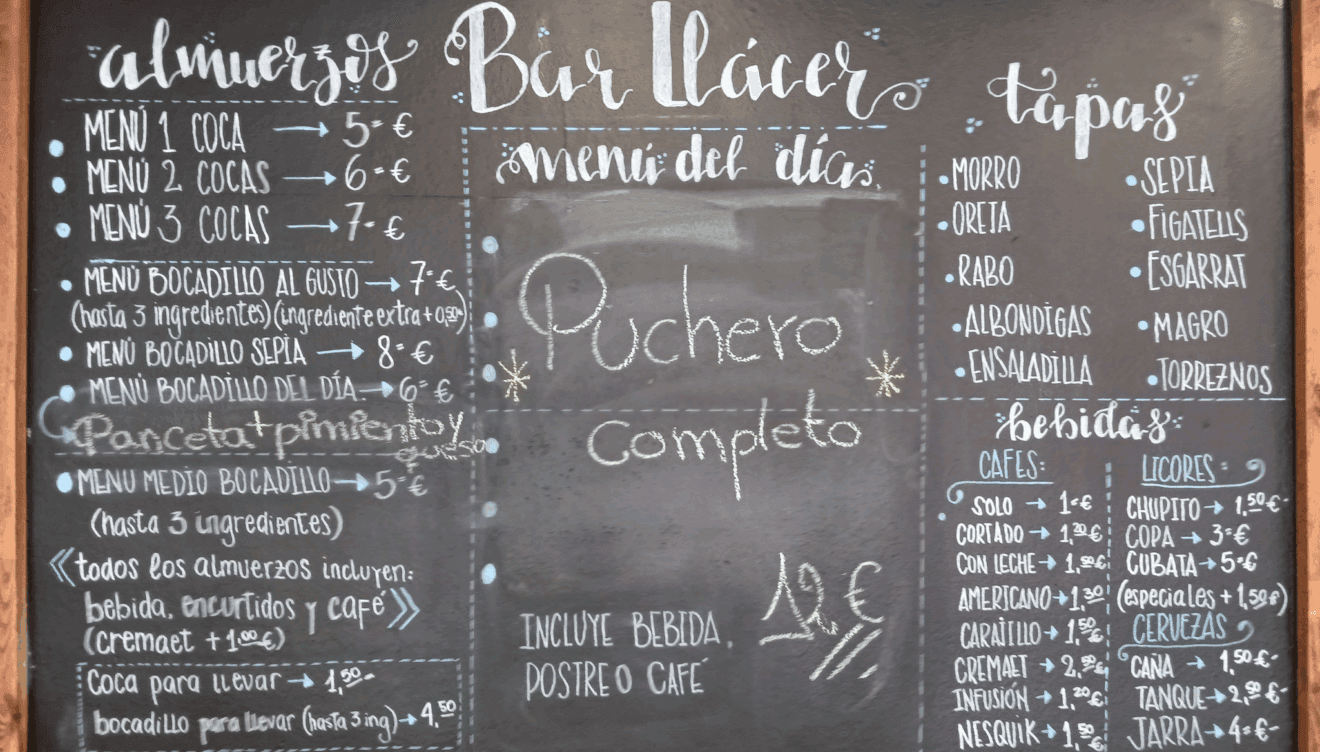 Bar Llácer
almuerzos
MENÚ 1 COCA → 5= €
MENÚ 2 COCAS → 6= €
MENÚ 3 COCAS → 7= €
MENÚ BOCADILLO AL GUSTO → 7= €
(hasta 3 ingredientes) (ingrediente extra + 0,50€)
MENÚ BOCADILLO SEPIA → 8= €
MENÚ BOCADILLO DEL DÍA → 6= €
Panceta + pimiento y
queso
MENU MEDIO BOCADILLO → 5= €
(hasta 3 ingredientes)
《todos los almuerzos incluyen:
bebida, encurtidos y café》
(cremaet + 1,00€)
Coca para llevar → 1,50-
bocadillo para llevar (hasta 3 ing) → 4,50
menú del día
Puchero
Completo
12 €
INCLUYE BEBIDA,
POSTRE O CAFÉ
tapas
MORRO
OREJA
RABO
ALBONDIGAS
ENSALADILLA
SEPIA
FIGATELLS
ESGARRAT
MAGRO
TORREZNOS
bebidas
CAFES:
SOLO → 1=€
CORTADO → 1,20€
CON LECHE → 1,50€
AMERICANO → 1,30
CARAJILLO → 1,50€
CREMAET → 2,50€
INFUSIÓN → 1,20€
NESQUIK → 1,50€
LICORES:
CHUPITO → 1,50€-
COPA → 3=€
CUBATA → 5=€
(especiales + 1,50€)
CERVEZAS
CAÑA → 1,50€-
TANQUE → 2,50€-
JARRA → 4=€-